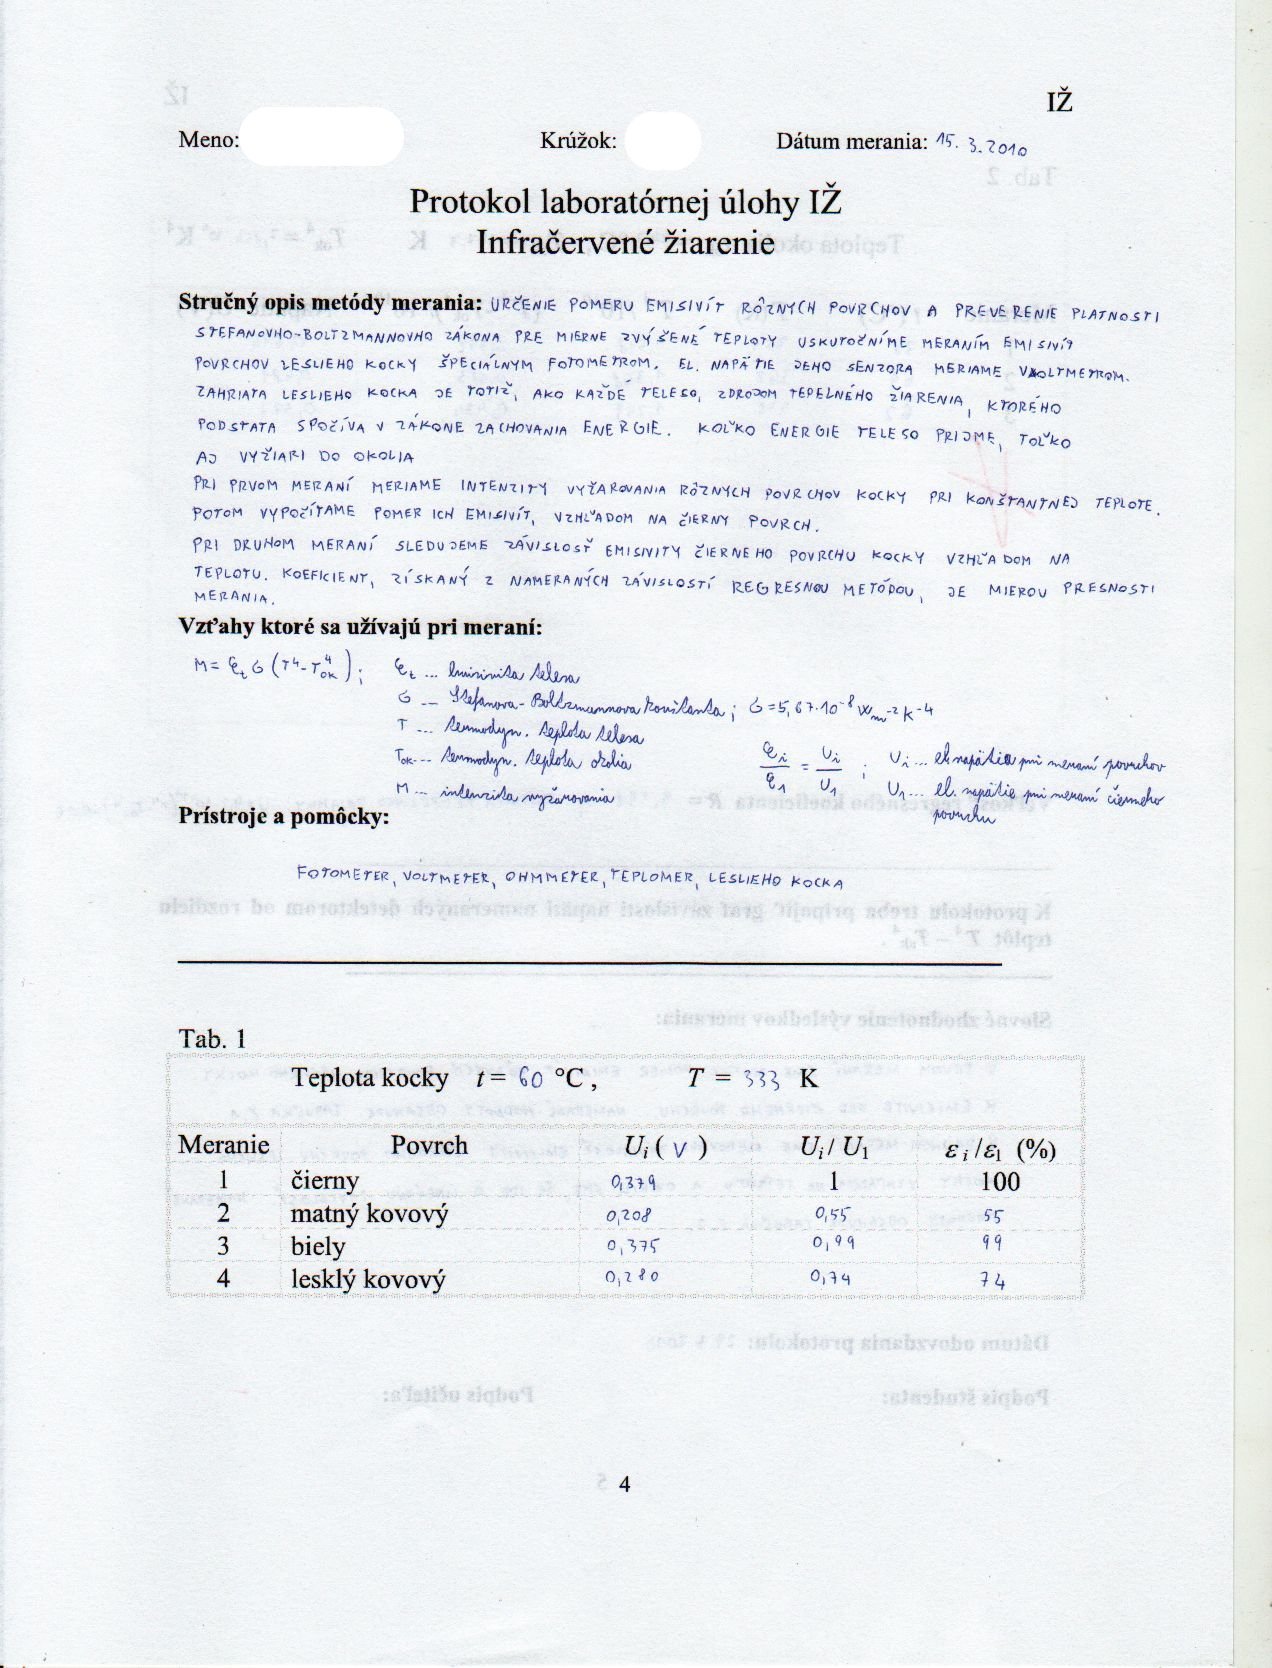 IŽ
Meno: Krúžok: Dátum merania: 15. 3. 2010
Protokol laboratórnej úlohy IŽ
Infračervené žiarenie
Stručný opis metódy merania: URČENIE POMERU EMISIVÍT RÔZNYCH POVRCHOV A PREVERENIE PLATNOSTI
STEFANOVHO-BOLTZMANNOVHO ZÁKONA PRE MIERNE ZVÝŠENÉ TEPLOTY USKUTOČNÍME MERANÍM EMISIVÍT
POVRCHOV LESLIEHO KOCKY ŠPECIÁLNYM FOTOMETROM. EL. NAPÄTIE JEHO SENZORA MERIAME VOLTMETROM.
ZAHRIATA LESLIEHO KOCKA JE TOTIŽ, AKO KAŽDÉ TELESO, ZDROJOM TEPELNÉHO ŽIARENIA, KTORÉHO
PODSTATA SPOČÍVA V ZÁKONE ZACHOVANIA ENERGIE. KOĽKO ENERGIE TELESO PRIJME, TOĽKO
AJ VYŽIARI DO OKOLIA
PRI PRVOM MERANÍ MERIAME INTENZITY VYŽAROVANIA RÔZNYCH POVRCHOV KOCKY PRI KONŠTANTNEJ TEPLOTE.
POTOM VYPOČÍTAME POMER ICH EMISIVÍT, VZHĽADOM NA ČIERNY POVRCH.
PRI DRUHOM MERANÍ SLEDUJEME ZÁVISLOSŤ EMISIVITY ČIERNEHO POVRCHU KOCKY VZHĽADOM NA
TEPLOTU. KOEFICIENT, ZÍSKANÝ Z NAMERANÝCH ZÁVISLOSTÍ REGRESNOU METÓDOU, JE MIEROU PRESNOSTI
MERANIA.
Vzťahy ktoré sa užívajú pri meraní:
M = ε_t σ (T⁴ - T_ok⁴); ε_t ... emisivita telesa
σ ... Stefanova-Boltzmannova konštanta; σ = 5,67·10⁻⁸ W m⁻² K⁻⁴
T ... termodyn. teplota telesa
T_ok ... termodyn. teplota okolia ε_i/ε_1 = U_i/U_1; U_i ... el. napätia pri meraní povrchov
M ... intenzita vyžarovania U_1 ... el. napätie pri meraní čierneho
povrchu
Prístroje a pomôcky:
FOTOMETER, VOLTMETER, OHMMETER, TEPLOMER, LESLIEHO KOCKA
Tab. 1
Teplota kocky t = 60 °C, T = 333 K
Meranie Povrch U_i ( V ) U_i / U_1 ε_i / ε_1 (%)
1 čierny 0,379 1 100
2 matný kovový 0,208 0,55 55
3 biely 0,375 0,99 99
4 lesklý kovový 0,280 0,74 74
4